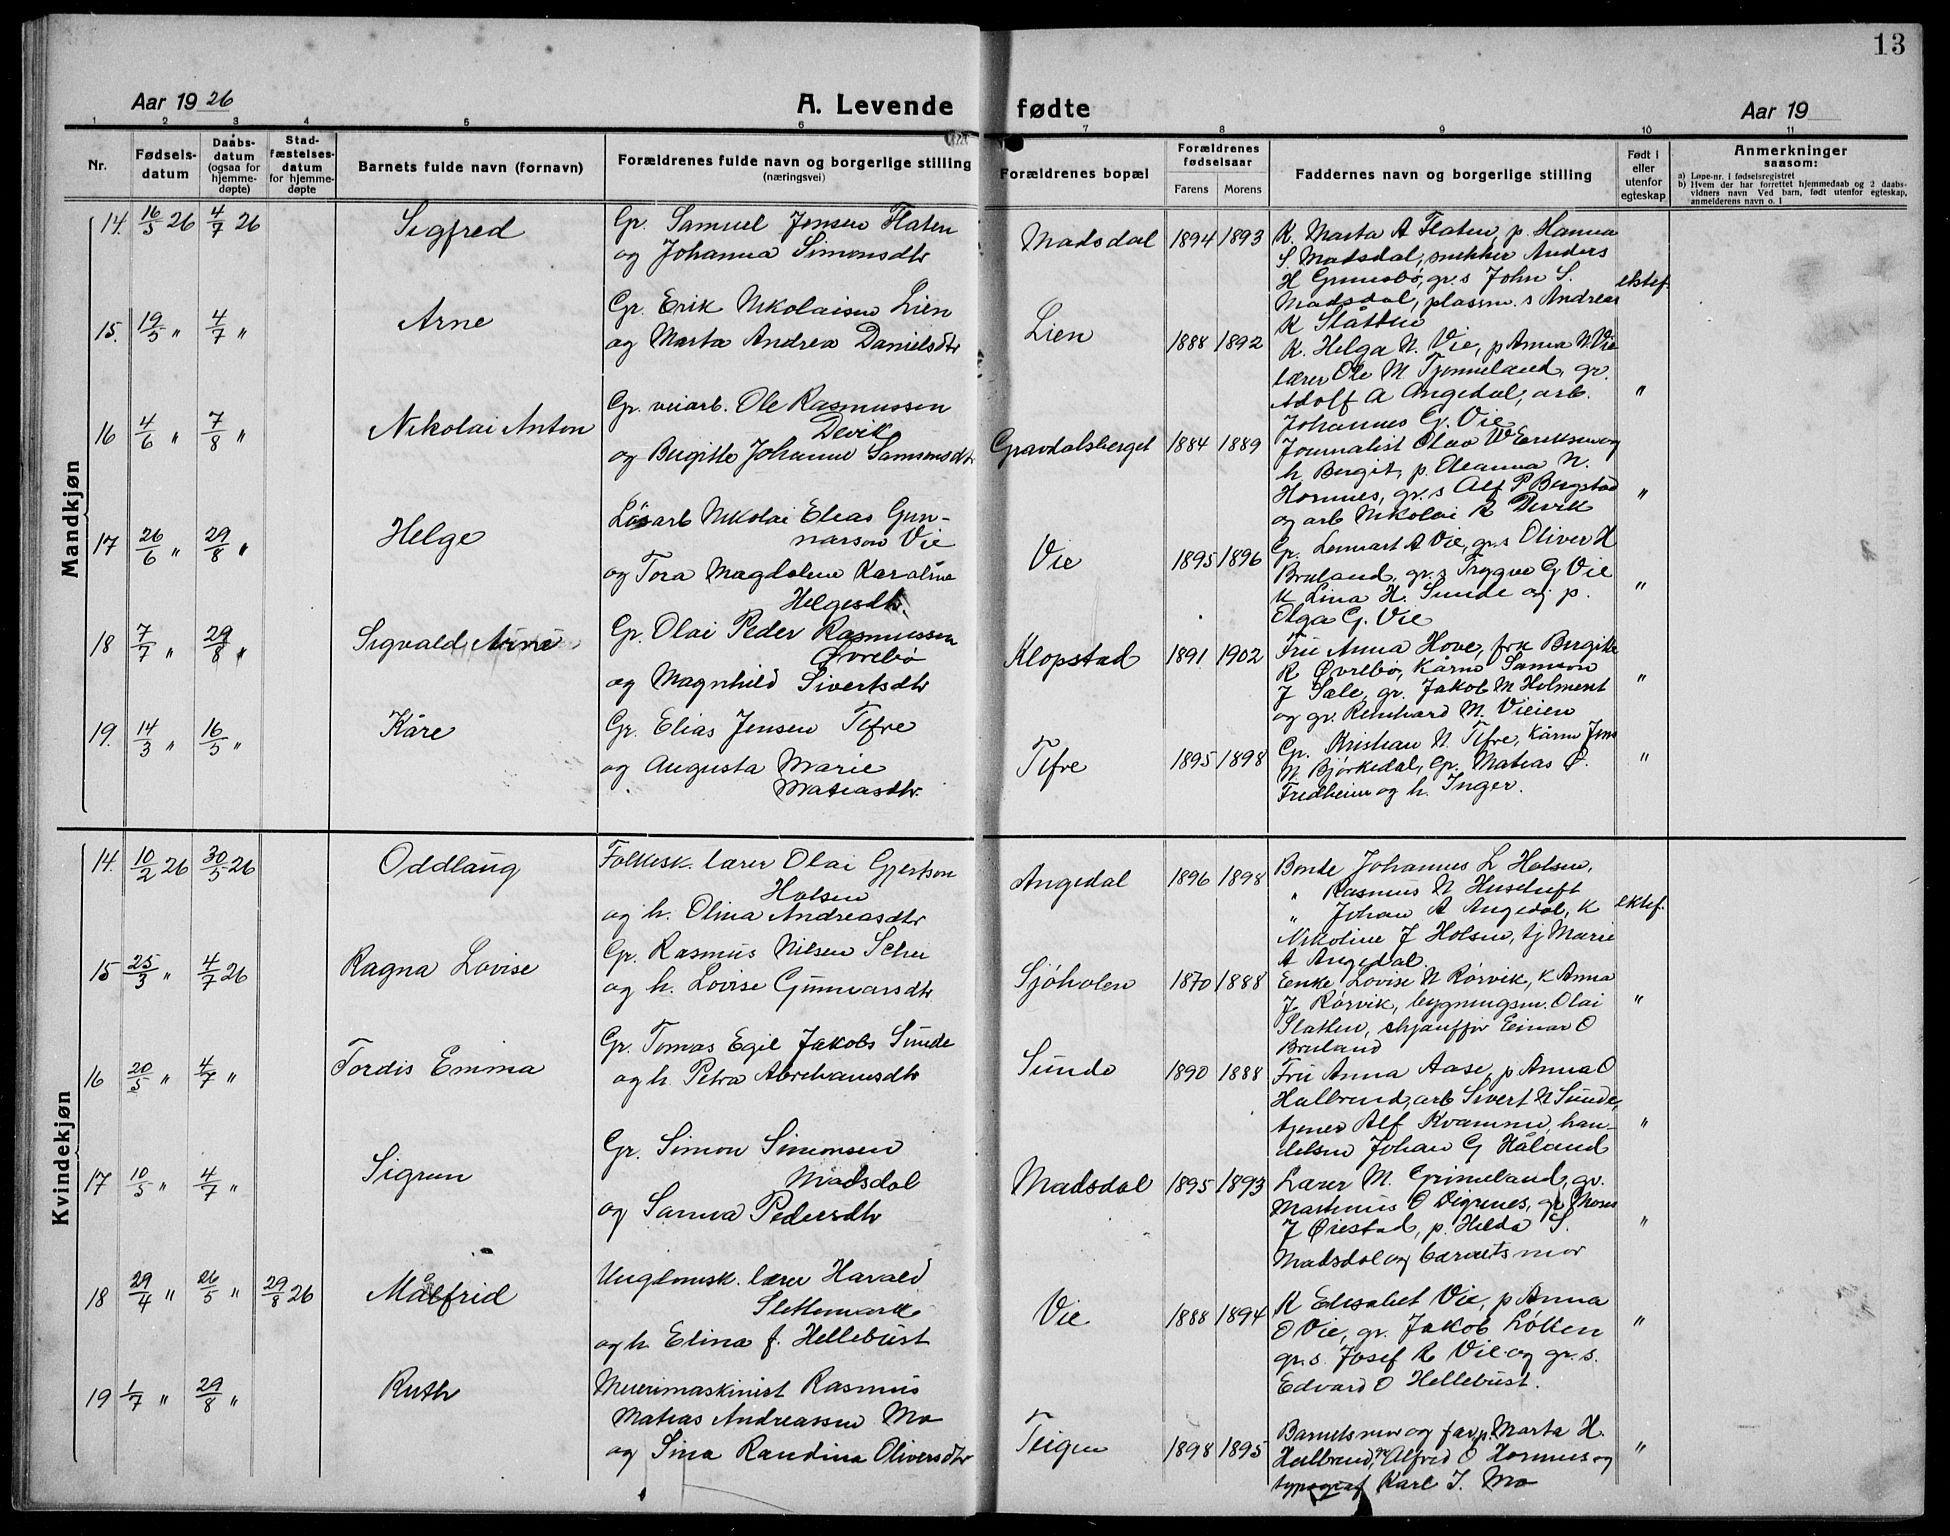 13
Aar 1926 A. Levende fødte Aar 19
1 2 3 4 5 6 7 8 9 10 11
Nr. Fødsels-datum Daabs-datum (ogsaa for hjemme-døpte) Stad-fæstelses-datum for hjemme-døpte Barnets fulde navn (fornavn) Forældrenes fulde navn og borgerlige stilling (næringsvei) Forældrenes bopæl Forældrenes fødselsaar Farens Morens Faddernes navn og borgerlige stilling Født i eller utenfor egteskap Anmerkninger saasom:
a) Løpe-nr. i fødselsregistret
b) Hvem der har forrettet hjemmedaab og 2 daabs-
vidners navn Ved barn, født utenfor egteskap,
anmelderens navn o. l
Mandkjøn
14. 16/5 26 4/7 26 Sigfred Gr. Samuel Jensen Flaten
og Johanna Simonsdtr
Madsdal 1894 1893 K. Marta A Flaten, p. Hanna
S. Madsdal, snekker Anders
H Grimsbø, gr.s John S.
Madsdal, plassm. s Andreas
K Slåtten
ektef.
15. 19/5 " 4/7 " Arne Gr. Erik Nikolaisen Lien
og Marta Andrea Danielsdtr
Lien 1888 1892 K. Helga N. Vie, p Anna N. Vie
lærer Ole M Tjønneland, gr.
Adolf A Angedal, arb.
Johannes G. Vie
"
16 4/6 " 7/8 " Nikolai Anton Gr. veiarb. Ole Rasmussen
Devik
og Birgitte Johanne Samsonsdtr
Gravdalsberget 1884 1889 Journalist Olav W Eriksen og
h Bergit, p. Oleanna N.
Hornnes, gr.s Alf P Bergstad
og arb Nikolai R Devik
"
17 26/6 " 29/8 " Helge Løsarb Nikolai Elias Gun-
narson Vie
og Tora Magdalene Karoline
Helgesdtr.
Vie 1895 1896 Gr. Lennart A Vie, gr.s Oliver H
Bruland, gr.s Trygve G Vie
K Lina H. Sunde og p.
Olga G. Vie
"
18 7/7 " 29/8 " Sigvald Arne Gr. Olai Peder Rasmussen
Øvrebø
og Magnhild Sivertsdtr
Klopstad 1891 1902 Fru Anna Hove, frk Bergitte
R Øvrebø, Kårm Samson
J Sæle, gr. Jakob M Holmset
og gr. Reinhard M. Vieien
"
19. 14/3 " 16/5 " Kåre Gr. Elias Jensen Tefre
og Augusta Marie
Matiasdtr.
Tefre 1895 1898 Gr. Kristian N. Tefre, Kårm Jens
N Bjørkedal, Gr. Matias O.
Fredheim og h. Inger.
"
Kvindekjøn
14. 10/2 26 30/5 26 Oddlaug Folkesk. lærer Olai Gjertson
Holsen
og h. Olina Andreasdtr
Angedal 1896 1898 Bonde Johannes L Holsen,
" Rasmus N Husetuft
" Johan A Angedal, K
Nikoline J Holsen, tj Marie
A Angedal.
ektef.
15 25/3 " 4/7 26 Ragna Lovise Gr. Rasmus Nilsen Schei
og h. Lovise Gunnarsdtr
Sjøholen 1870 1888 Enke Lovise N Rørvik, K Anna
J Rørvik, bygningsm. Olai
Slatten, skjauffør Einar O
Bruland
"
16 20/5 " 4/7 " Tordis Emma Gr. Tomas Egil Jakobs Sunde
og h. Petra Abrahamsdtr
Sunde 1890 1888 Fru Anna Aase, p Anna O
Halbrend, arb Sivert N Sunde,
tjener Alf Kvamme, han-
delsm Johan G Håland
"
17 10/5 " 4/7 " Sigrun Gr. Simon Simonsen
Madsdal
og Sanna Pedersdtr
Madsdal 1895 1893 Lærer M. Grimeland, gr.
Martinus O Digrenes, gr Moses
J Øiestad, p. Hilda S.
Madsdal og barnets mor
"
18 29/4 " 26/5 " 29/8 26 Målfrid Ungdomsk. lærer Harald
Slettemark
og h Elina f. Hellebust
Vie 1888 1894 K Elisabet Vie, p Anna
O Vie, gr. Jakob Løken
gr.s. Josef R Vie og gr.s.
Edvard O Hellebust.
"
19 1/7 " 29/8 " Ruth Meierimaskinist Rasmus
Matias Andreassen Mo
og Sina Randina Oliversdtr
Teigen 1898 1895 Barnets mor og far, p. Marta H.
Halbrend, Alfred O Hornnes og
typograf Karl J. Mo
"